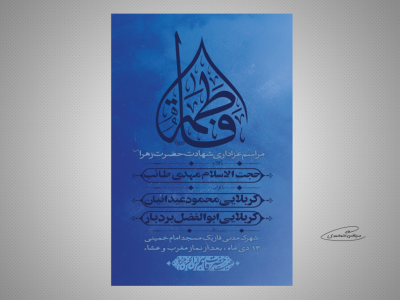 فاطمة
مراسم عزاداری شهادت حضرت زهرا
حجت الاسلام مهدی طائب
کربلایی محمود عیدانیان
کربلایی ابوالفضل بردبار
شهرک مدنی فاز یک مسجد امام خمینی
۱۳ دی ماه ، بعد از نماز مغرب و عشاء